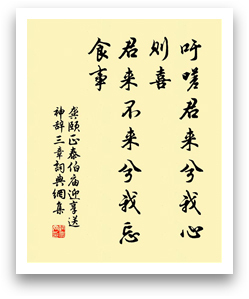 吁嗟君来兮我心
则喜
君来不来兮我忘
食事
龚颐正泰伯庙迎享送
神辞三章詞典網集